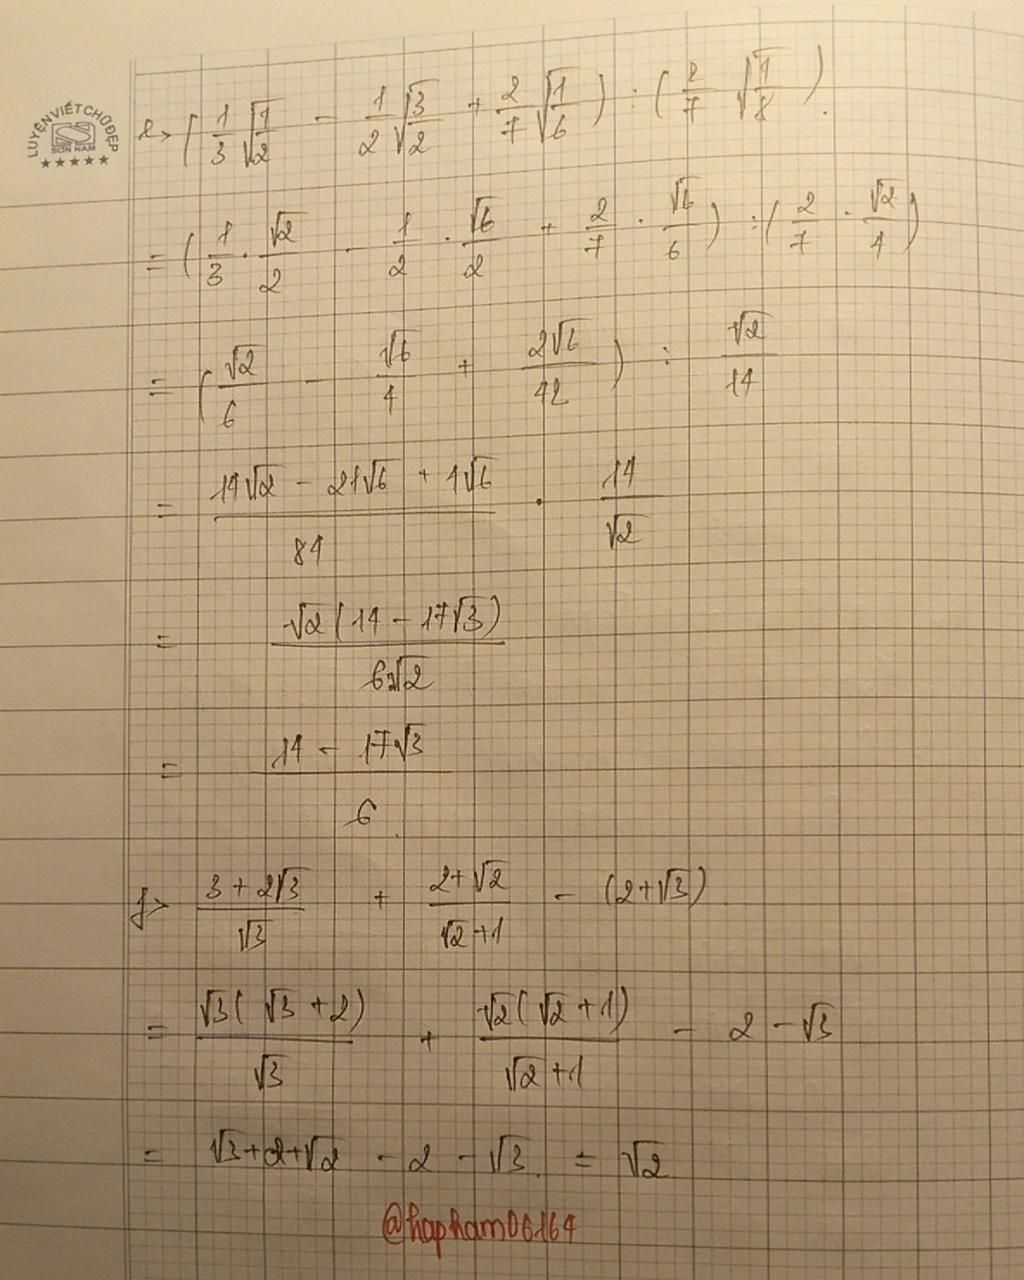 LUYỆN VIẾT CHỮ ĐẸP
SƠN NAM
e> ( 1/3 √(1/2) - 1/2 √(3/2) + 2/7 √(1/6) ) : ( 2/7 √(1/8) ).
= ( 1/3 . √2/2 - 1/2 . √6/2 + 2/7 . √6/6 ) : ( 2/7 . √2/4 )
= ( √2/6 - √6/4 + 2√6/42 ) : √2/14
= (14√2 - 21√6 + 4√6)/84 . 14/√2
= √2(14 - 17√3)/6√2
= (14 - 17√3)/6
f> (3 + 2√3)/√3 + (2+√2)/(√2+1) - (2+√3)
= √3(√3 + 2)/√3 + √2(√2 + 1)/(√2+1) - 2 - √3
= √3+2+√2 - 2 - √3 = √2
@hapham06164